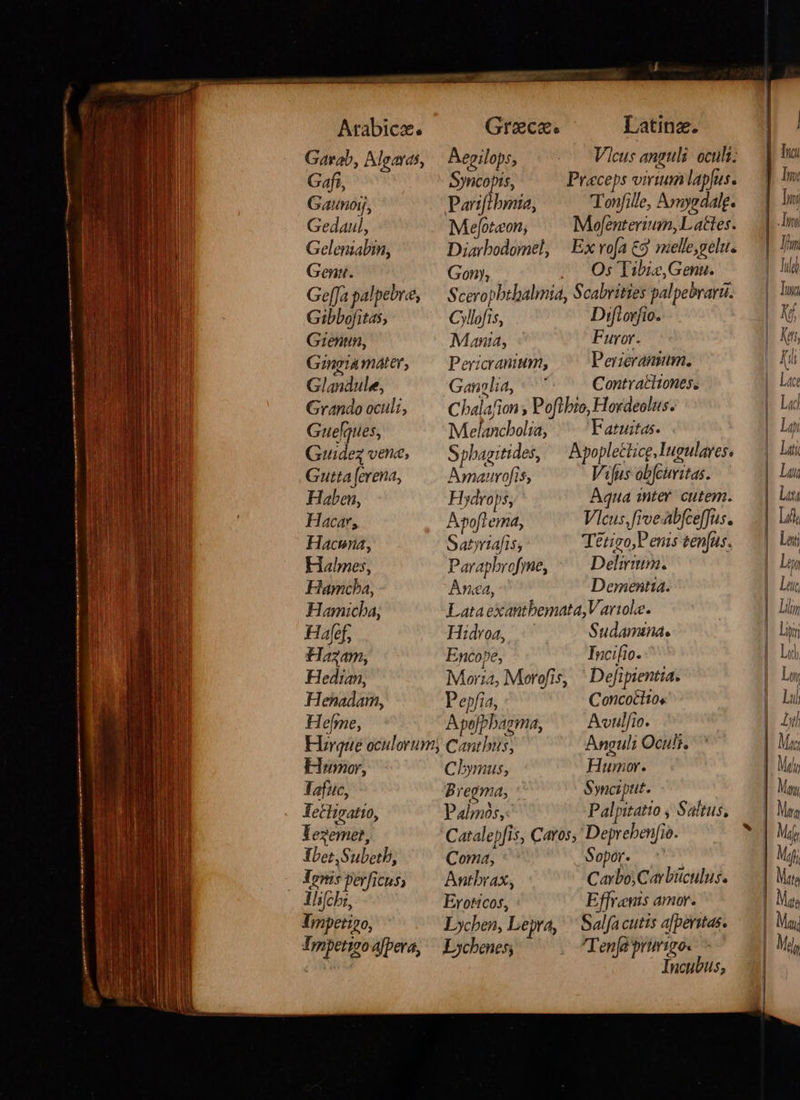 Arabicæ. Græcæ. Latinæ.
Garab, Algaras, Aegilops, Vlcus anguli oculi:
Gafi, Syncopis, Præceps virium lapſus.
Gaunoij, Pariſthmia, Tonſille, Amygdalę.
Gedaul, Meſotæon, Moſenterium, Lactes.
Geleniabin, Diarhodomel, Ex roſa & melle, gelu.
Genu. Gony, Os Tibiæ, Genu.
Geſſa palpebræ, Scerophthalmia, Scabrities palpebrarū.
Gibboſitas, Cylloſis, Diſtorſio.
Gienun, Mania, Furor.
Gingia mater, Pericranium, Perieranium.
Glandule, Ganglia, Contractiones.
Grando oculi, Chalaſion, Poſthio, Hordeolus.
Gueſques, Melancholia, Fatuitas.
Guidez venæ, Sphagitides, Apoplecticę, Iugulares.
Gutta ſerena, Amauroſis, Viſus obſcuritas.
Haben, Hydrops, Aqua inter cutem.
Hacar, Apoſtema, Vlcus, ſive abſceſſus.
Hacuna, Satyriaſis, Tētigo, Penis tenſus.
Halmes, Paraphroſyne, Delirium.
Hamcha, Anœa, Dementia.
Hamicha, Lata exanthemata, Variolæ.
Haſef, Hidroa, Sudamina.
Hazam, Encope, Inciſio.
Hedian, Moria, Moroſis, Deſipientia.
Henadam, Pepſia, Concoctio.
Heſme, Apoſphagma, Avulſio.
Hirque oculorum, Canthus, Anguli Oculi.
Humor, Chymus, Humor.
Iafuc, Bregma, Synciput.
Iectigatio, Palmòs, Palpitatio, Saltus.
Iezemet, Catalepſis, Caros, Deprehenſio.
Ibet, Subeth, Coma, Sopor.
Ignis perſicus, Anthrax, Carbo, Carbūculus.
Iliſchi, Eroticos, Effrænis amor.
Impetigo, Lychen, Lepra, Salſa cutis aſperitas.
Impetigo aſpera, Lychenes, Tenſa prurigo.
Incubus,